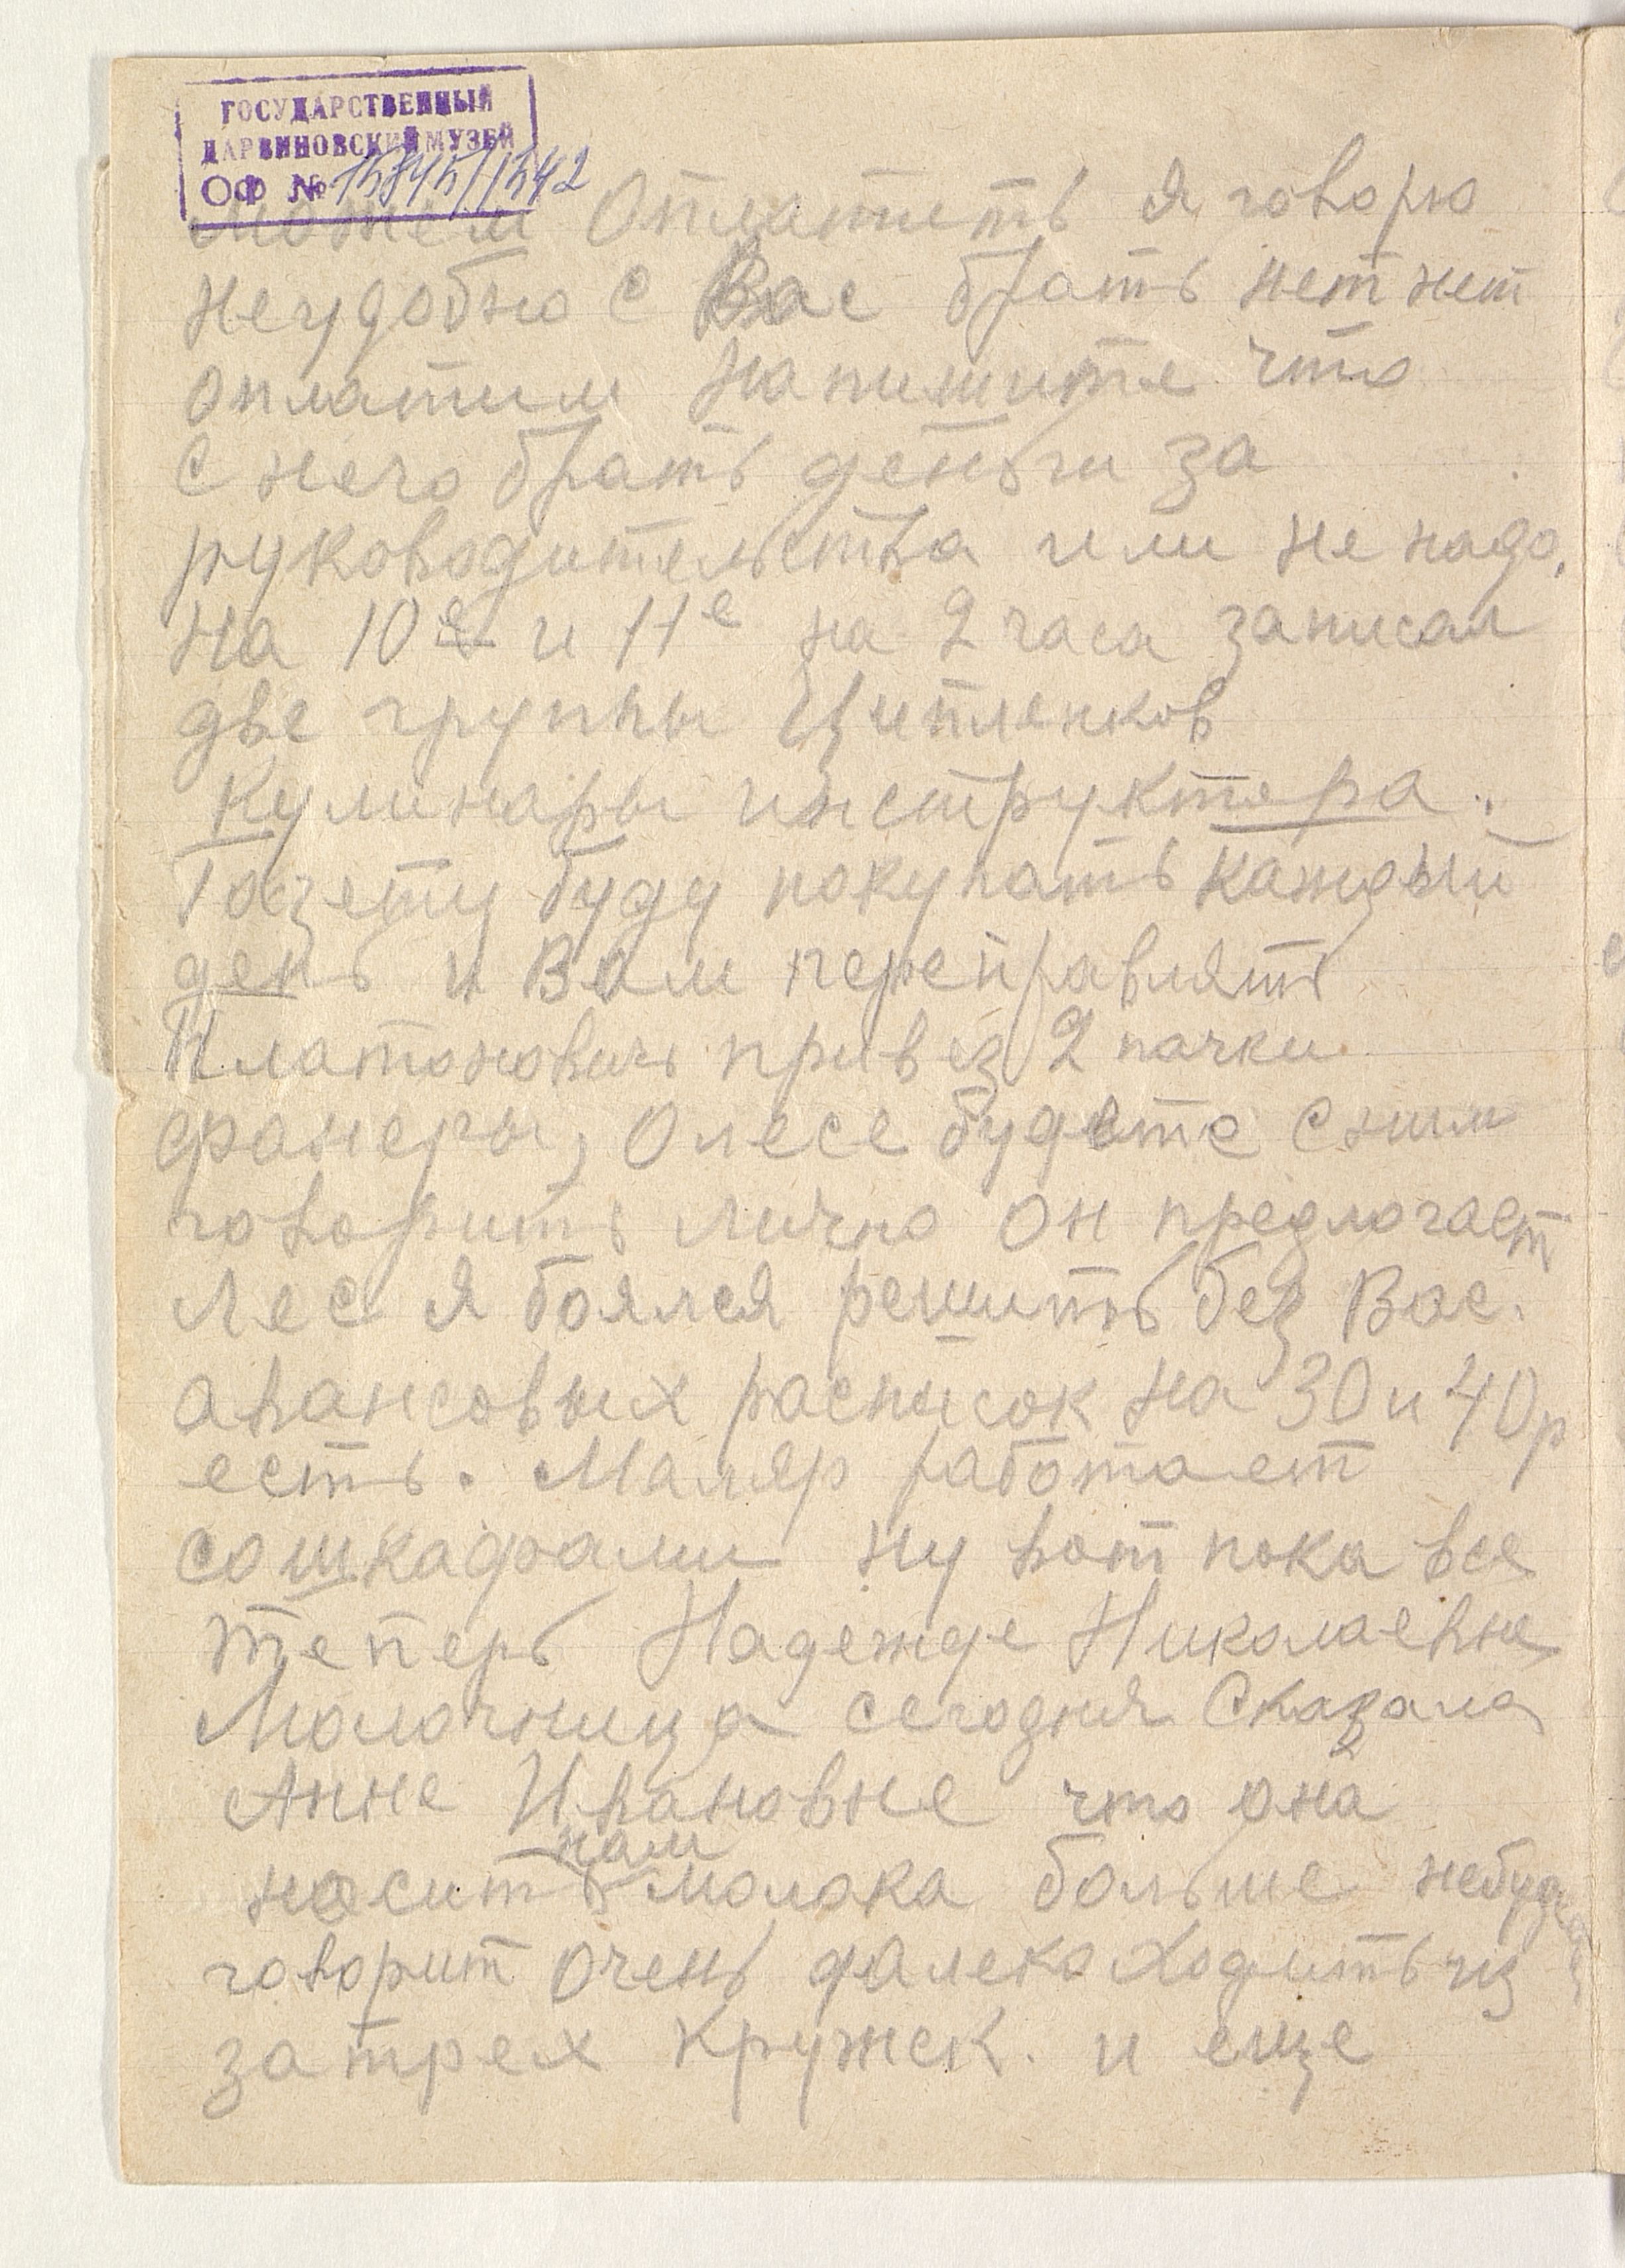 ГОСУДАРСТВЕННЫЙ
ДАРВИНОВСКИЙ МУЗЕЙ
ОФ № 15845/1542
можем Оплатить я говорю
неудобно с Вас брать нет нет
оплатим Напишите что
с него брать деньги за
руководительства или не надо.
На 10е и 11е на 2 часа записал
две группы
Кулинары инструктера.
Газету буду покупать каждый
день и Вам переправлять
Платонович привез 2 пачки
фанеры, Олесе будете с ним
говорить лично Он предлогает
Лес я боялся решить без Вас.
авансовых расписок на 30 и 40 р
есть. Маляр работает
со шкафами Ну вот пока все
теперь Надежде Николаевне
Молочница сегодня Сказала
Анне Ивановне что она
нам
носить молока больше небудет
говорит Очень далеко Ходить из
за трех Кружек. и еще